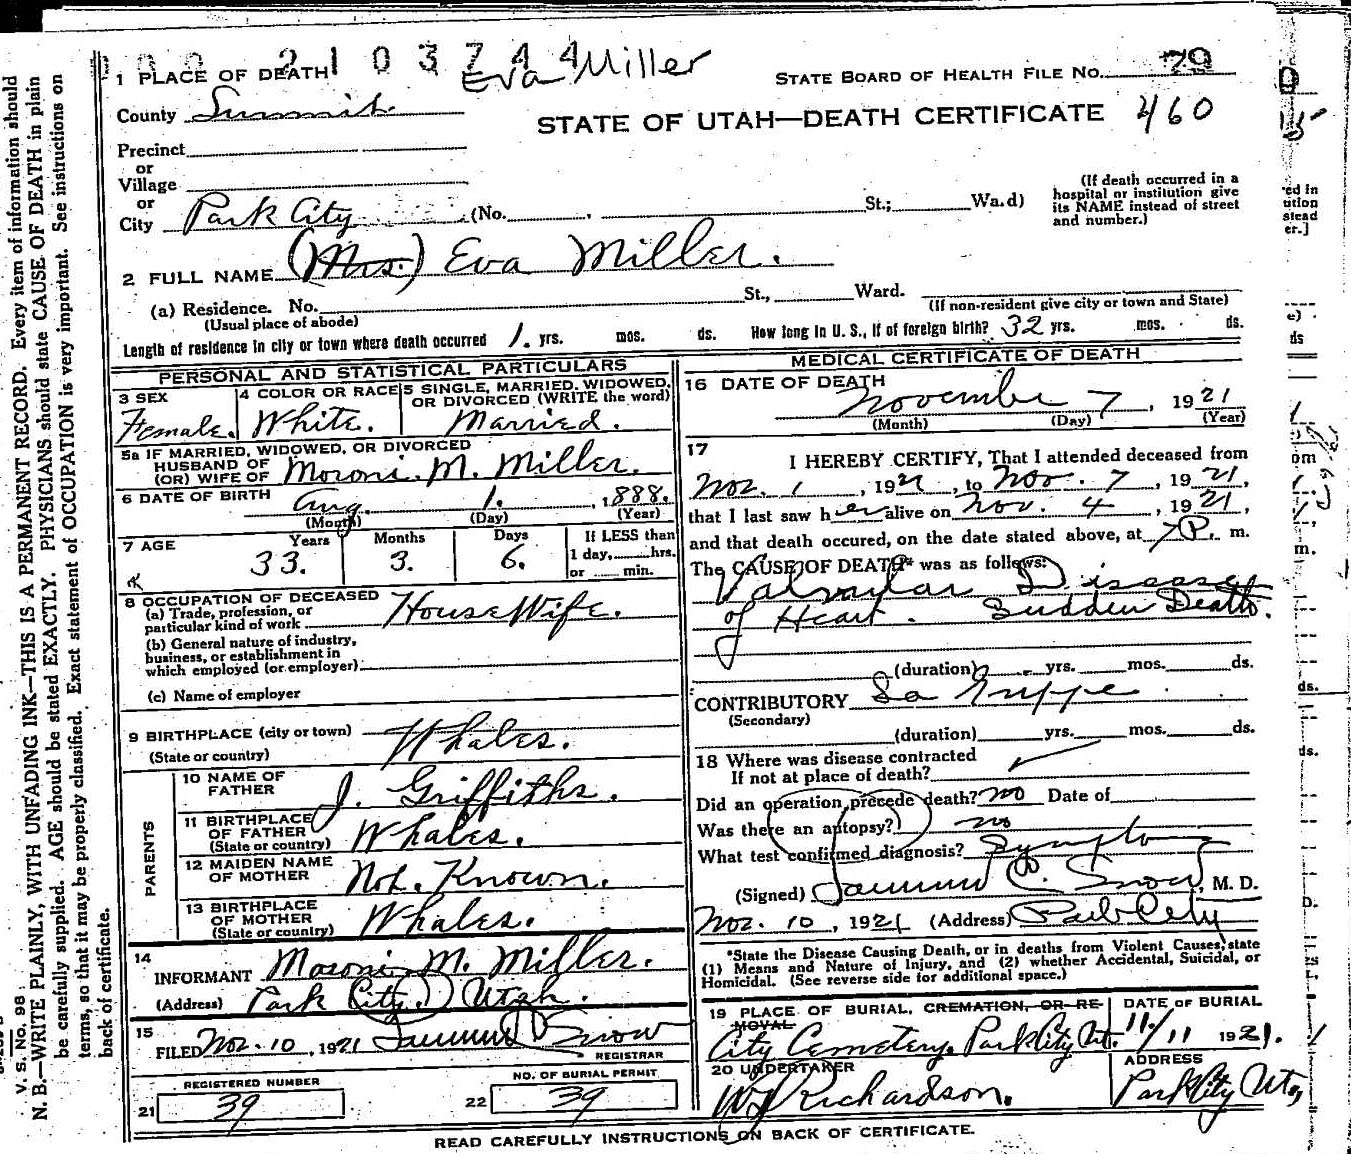 2103744
Eva Miller
1 PLACE OF DEATH
STATE BOARD OF HEALTH FILE NO. 79
County Summit
STATE OF UTAH—DEATH CERTIFICATE 460
Precinct
or
Village
or
City Park City (No. , St.; Wa.d)
(If death occurred in a
hospital or institution give
its NAME instead of street
and number.)
2 FULL NAME (Mrs.) Eva Miller.
(a) Residence. No. St., Ward.
(Usual place of abode) (If non-resident give city or town and State)
Length of residence in city or town where death occurred 1. yrs. mos. ds. How long in U. S., if of foreign birth? 32 yrs. mos. ds.
PERSONAL AND STATISTICAL PARTICULARS
3 SEX
Female.
4 COLOR OR RACE
White.
5 SINGLE, MARRIED, WIDOWED,
OR DIVORCED (WRITE the word)
Married.
5a IF MARRIED, WIDOWED, OR DIVORCED
HUSBAND OF
(OR) WIFE OF Moroni. M. Miller.
6 DATE OF BIRTH Aug. 1. , 1888.
(Month) (Day) (Year)
7 AGE Years Months Days If LESS than
33. 3. 6. 1 day, hrs.
or min.
8 OCCUPATION OF DECEASED
(a) Trade, profession, or
particular kind of work HouseWife.
(b) General nature of industry,
business, or establishment in
which employed (or employer)
(c) Name of employer
9 BIRTHPLACE (city or town)
(State or country) Whales.
PARENTS
10 NAME OF
FATHER J. Griffiths.
11 BIRTHPLACE
OF FATHER
(State or country) Whales.
12 MAIDEN NAME
OF MOTHER Not. Known.
13 BIRTHPLACE
OF MOTHER
(State or country) Whales.
14
INFORMANT Moroni. M. Miller.
(Address) Park City. Utah.
15
FILED Nov. 10, 1921 Snow
REGISTRAR
REGISTERED NUMBER
21 39
NO. OF BURIAL PERMIT
22 39
MEDICAL CERTIFICATE OF DEATH
16 DATE OF DEATH
November 7, 1921
(Month) (Day) (Year)
17
I HEREBY CERTIFY, That I attended deceased from
Nov. 1, 1921, to Nov. 7, 1921,
that I last saw her alive on Nov. 4, 1921,
and that death occured, on the date stated above, at 7 P. m.
The CAUSE OF DEATH* was as follows:
Valvular Disease
of Heart. Sudden Death.
(duration) yrs. mos. ds.
CONTRIBUTORY La Grippe
(Secondary)
(duration) yrs. mos. ds.
18 Where was disease contracted
If not at place of death?
Did an operation precede death? no Date of
Was there an autopsy? no
What test confirmed diagnosis? Symptoms
(Signed) C. Snow, M. D.
Nov. 10, 1921 (Address) Park City
*State the Disease Causing Death, or in deaths from Violent Causes, state
(1) Means and Nature of Injury, and (2) whether Accidental, Suicidal, or
Homicidal. (See reverse side for additional space.)
19 PLACE OF BURIAL, CREMATION, OR RE-
MOVAL
City Cemetery. Park City Ut.
DATE OF BURIAL
11/11 1921.
20 UNDERTAKER
Richardson.
ADDRESS
Park City Utg
READ CAREFULLY INSTRUCTIONS ON BACK OF CERTIFICATE.
V. S. No. 98
N. B.—WRITE PLAINLY, WITH UNFADING INK—THIS IS A PERMANENT RECORD. Every item of information should
be carefully supplied. AGE should be stated EXACTLY. PHYSICIANS should state CAUSE OF DEATH in plain
terms, so that it may be properly classified. Exact statement of OCCUPATION is very important. See instructions on
back of certificate.